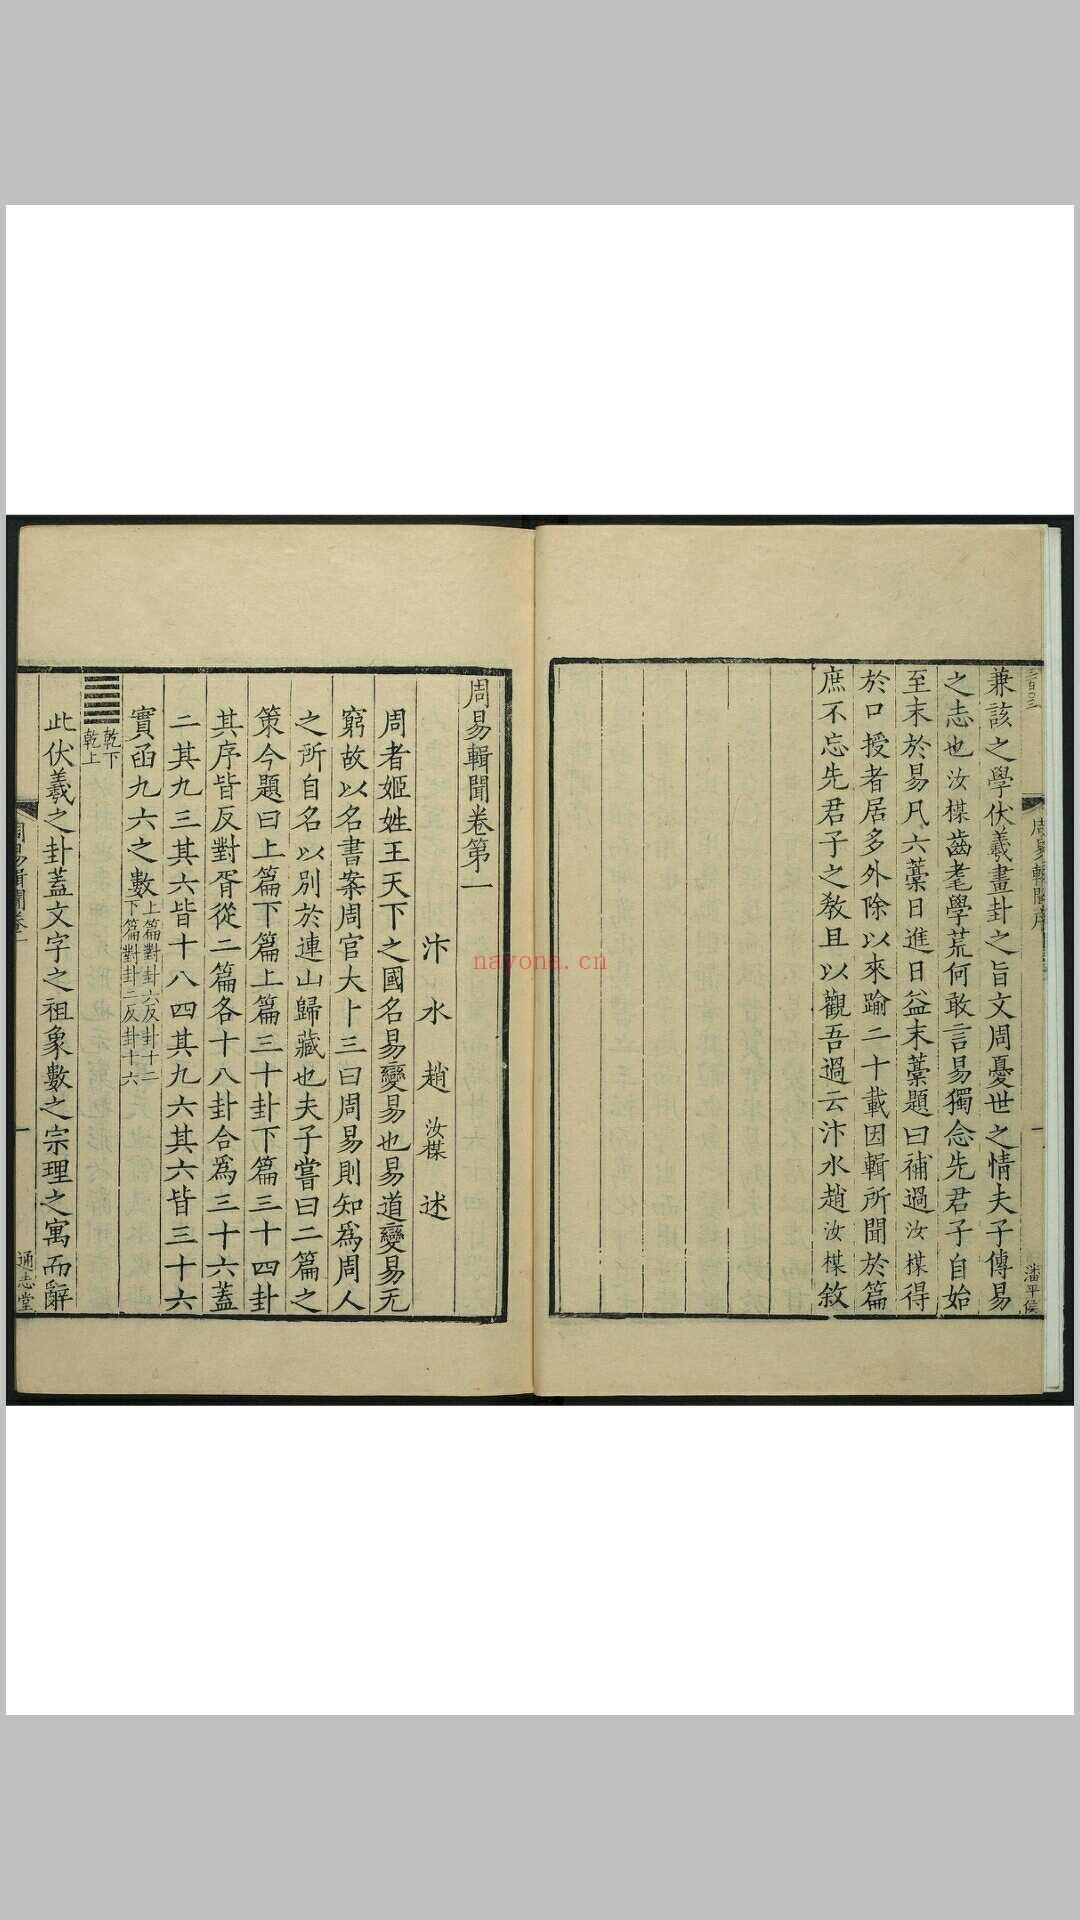 兼該之學伏羲畫卦之旨文周憂世之情夫子傳易
之志也汝楳齒耄學荒何敢言易獨念先君子自始
至末於易凡六藁日進日益末藁題曰補過汝楳得
於口授者居多外除以來踰二十載因輯所聞於篇
庶不忘先君子之教且以觀吾過云汴水趙汝楳敘
周易輯聞序
潘平侯
周易輯聞卷第一
汴水趙汝楳述
周者姬姓王天下之國名易變易也易道變易无
窮故以名書案周官大卜三曰周易則知為周人
之所自名以別於連山歸藏也夫子嘗曰二篇之
策今題曰上篇下篇上篇三十卦下篇三十四卦
其序皆反對胥從二篇各十八卦合為三十六蓋
二其九三其六皆十八四其九六其六皆三十六
實函九六之數上篇對卦六反卦十二
下篇對卦二反卦十六
乾下
乾上
此伏羲之卦蓋文字之祖象數之宗理之寓而辭
周易輯聞卷一
一
通志堂
nayona.cn